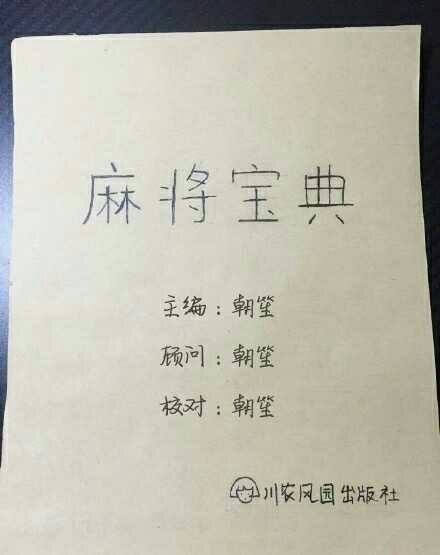 麻将宝典
主编：朝笙
顾问：朝笙
校对：朝笙
川农风园出版社